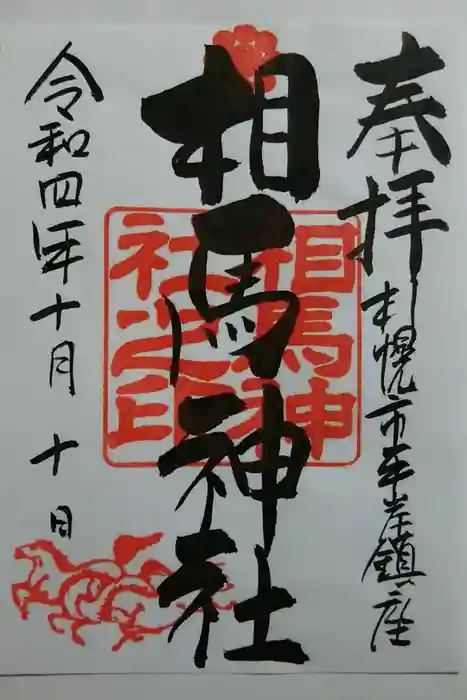 奉拝
札幌市平岸鎮座
相馬神社
相馬神
社之印
令和四年十月十日